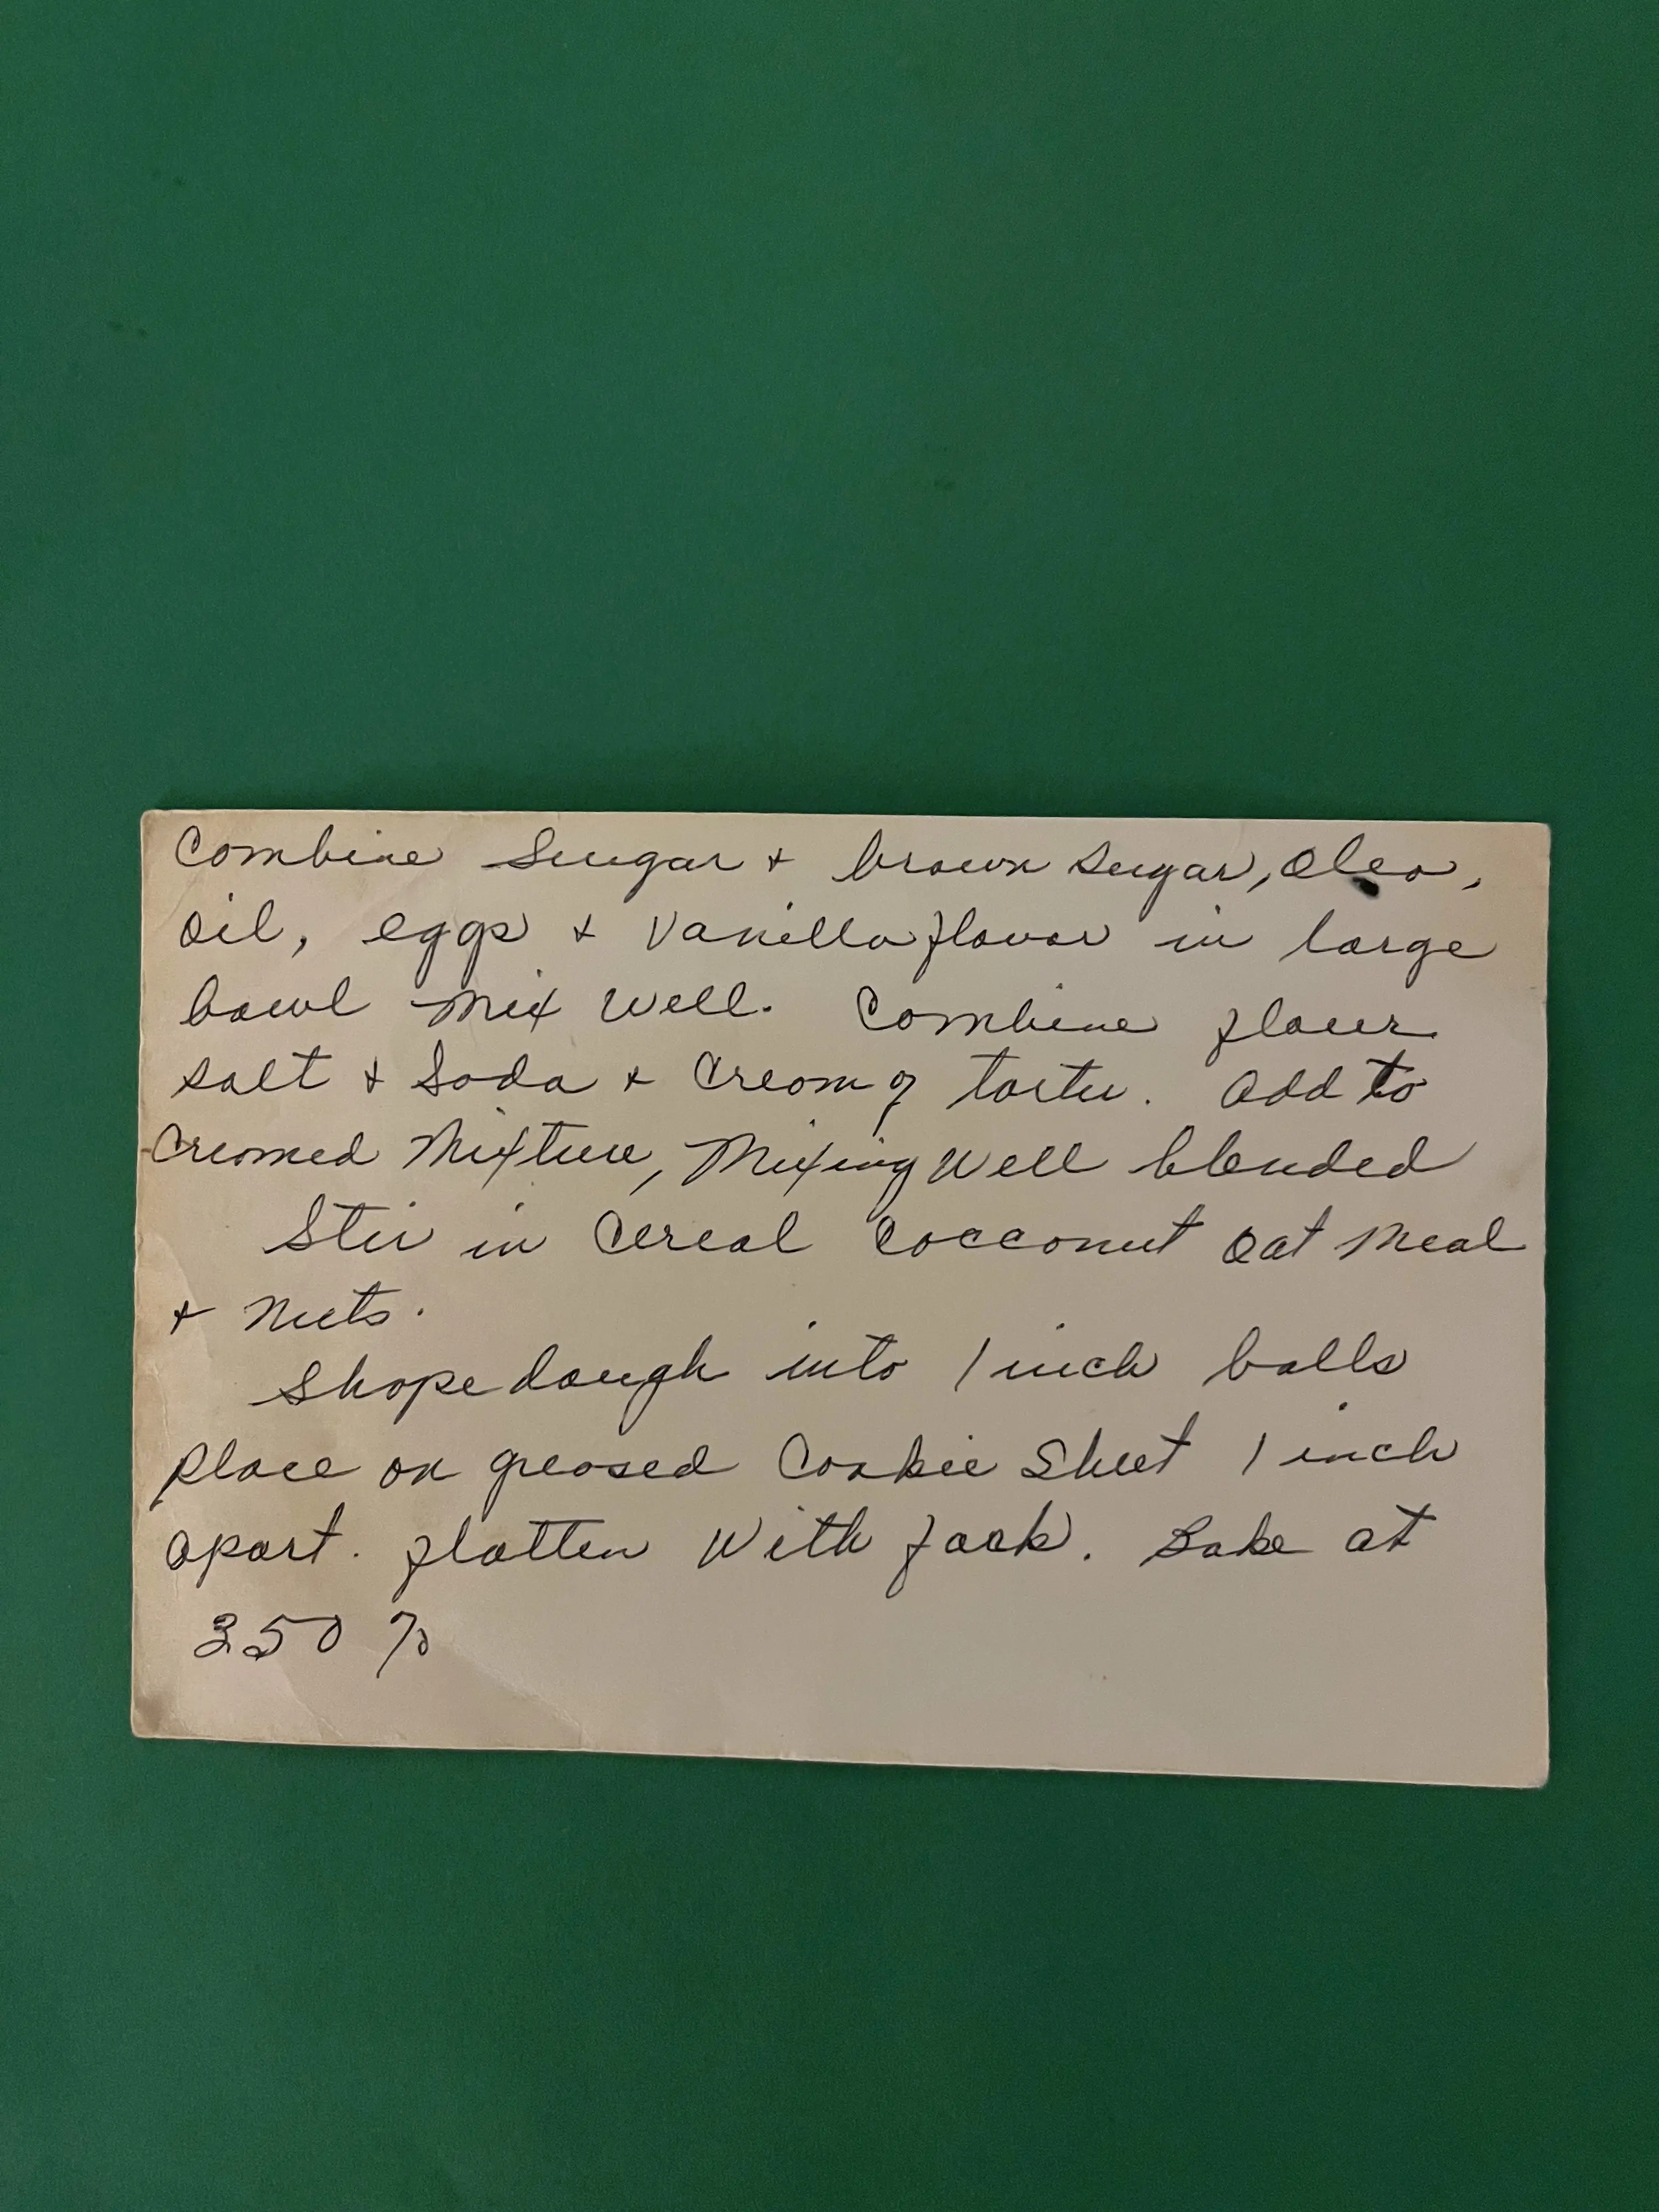 Combine Sugar + brown sugar, Oleo,
Oil, eggs + Vanilla flavor in large
bowl Mix Well. Combine flour
salt + Soda + Cream of tarter. Add to
Creamed Mixture, Mixing Well blended
Stir in Cereal Cocconut Oat Meal
+ Nuts.
Shape dough into 1 inch balls
Place on greased Cookie Sheet 1 inch
apart. flatten With fork. Bake at
350 %